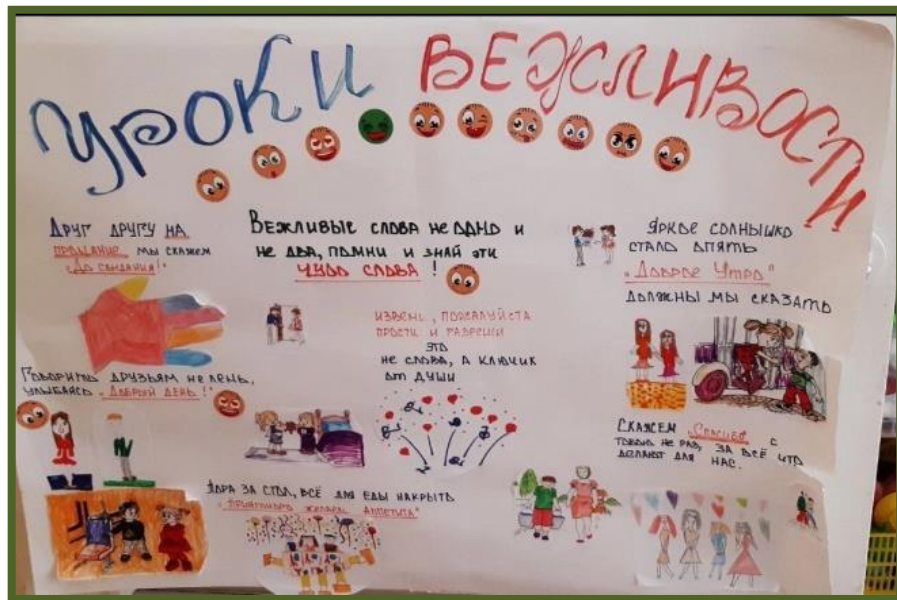 УРОКИ ВЕЖЛИВОСТИ
ДРУГ ДРУГУ НА
ПРОЩАНИЕ МЫ СКАЖЕМ
„ДО СВИДАНИЯ!"
ВЕЖЛИВЫЕ СЛОВА НЕ ОДНО И
НЕ ДВА, ПОМНИ И ЗНАЙ ЭТИ
ЧУДО СЛОВА!
ЯРКОЕ СОЛНЫШКО
СТАЛО ОПЯТЬ
„ДОБРОЕ УТРО"
ДОЛЖНЫ МЫ СКАЗАТЬ
ИЗВЕНИ, ПОЖАЛУЙСТА
ПРОСТИ И РАЗРЕШИ
ЭТО
НЕ СЛОВА, А КЛЮЧИК
ОТ ДУШИ
ГОВОРИТЬ ДРУЗЬЯМ НЕ ЛЕНЬ,
УЛЫБАЯСЬ „ДОБРЫЙ ДЕНЬ!"
СКАЖЕМ „СПАСИБО" С
ТОБОЮ НЕ РАЗ, ЗА ВСЁ ЧТО
ДЕЛАЮТ ДЛЯ НАС.
ПОРА ЗА СТОЛ, ВСЁ ДЛЯ ЕДЫ НАКРЫТО
„ПРИЯТНОГО ЖЕЛАЕМ АППЕТИТА"